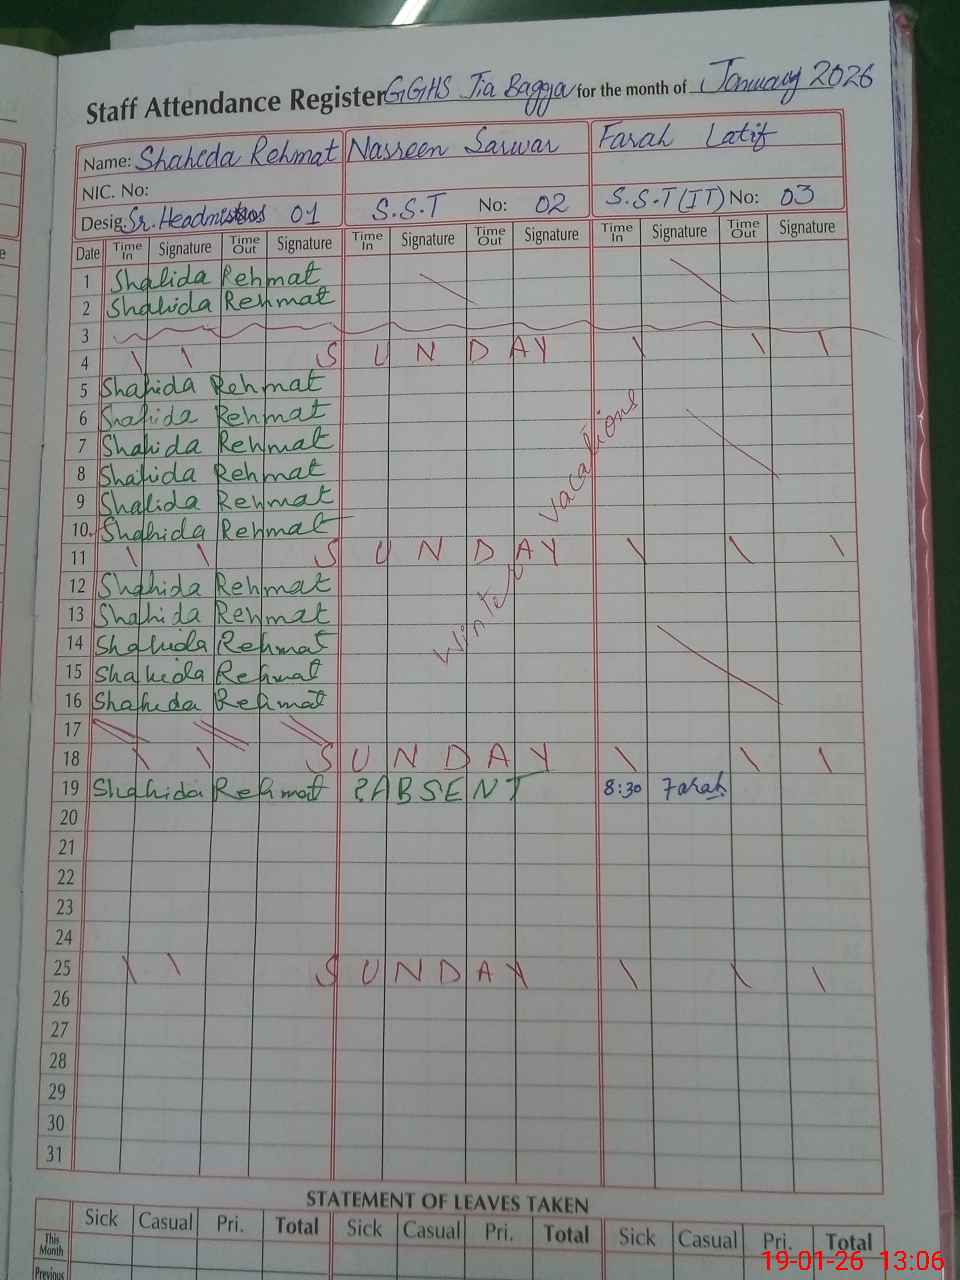 Staff Attendance Register GGHS Jia Bagga for the month of January 2026
Name: Shahida Rehmat Nasreen Sarwar Farah Latif
NIC. No:
Desig. Sr. Headmistress 01 S.S.T No: 02 S.S.T (IT) No: 03
Date Time In Signature Time Out Signature Time In Signature Time Out Signature Time In Signature Time Out Signature
1 Shahida Rehmat
2 Shahida Rehmat
3
4 SUNDAY
5 Shahida Rehmat
6 Shahida Rehmat
7 Shahida Rehmat
8 Shahida Rehmat
9 Shahida Rehmat
10. Shahida Rehmat
11 SUNDAY
12 Shahida Rehmat
13 Shahida Rehmat
14 Shahida Rehmat
15 Shahida Rehmat
16 Shahida Rehmat
Winter Vacations
17
18 SUNDAY
19 Shahida Rehmat ABSENT 8:30 Farah
20
21
22
23
24
25 SUNDAY
26
27
28
29
30
31
STATEMENT OF LEAVES TAKEN
Sick Casual Pri. Total Sick Casual Pri. Total Sick Casual Pri. Total
This Month
Previous
19-01-26 13:06